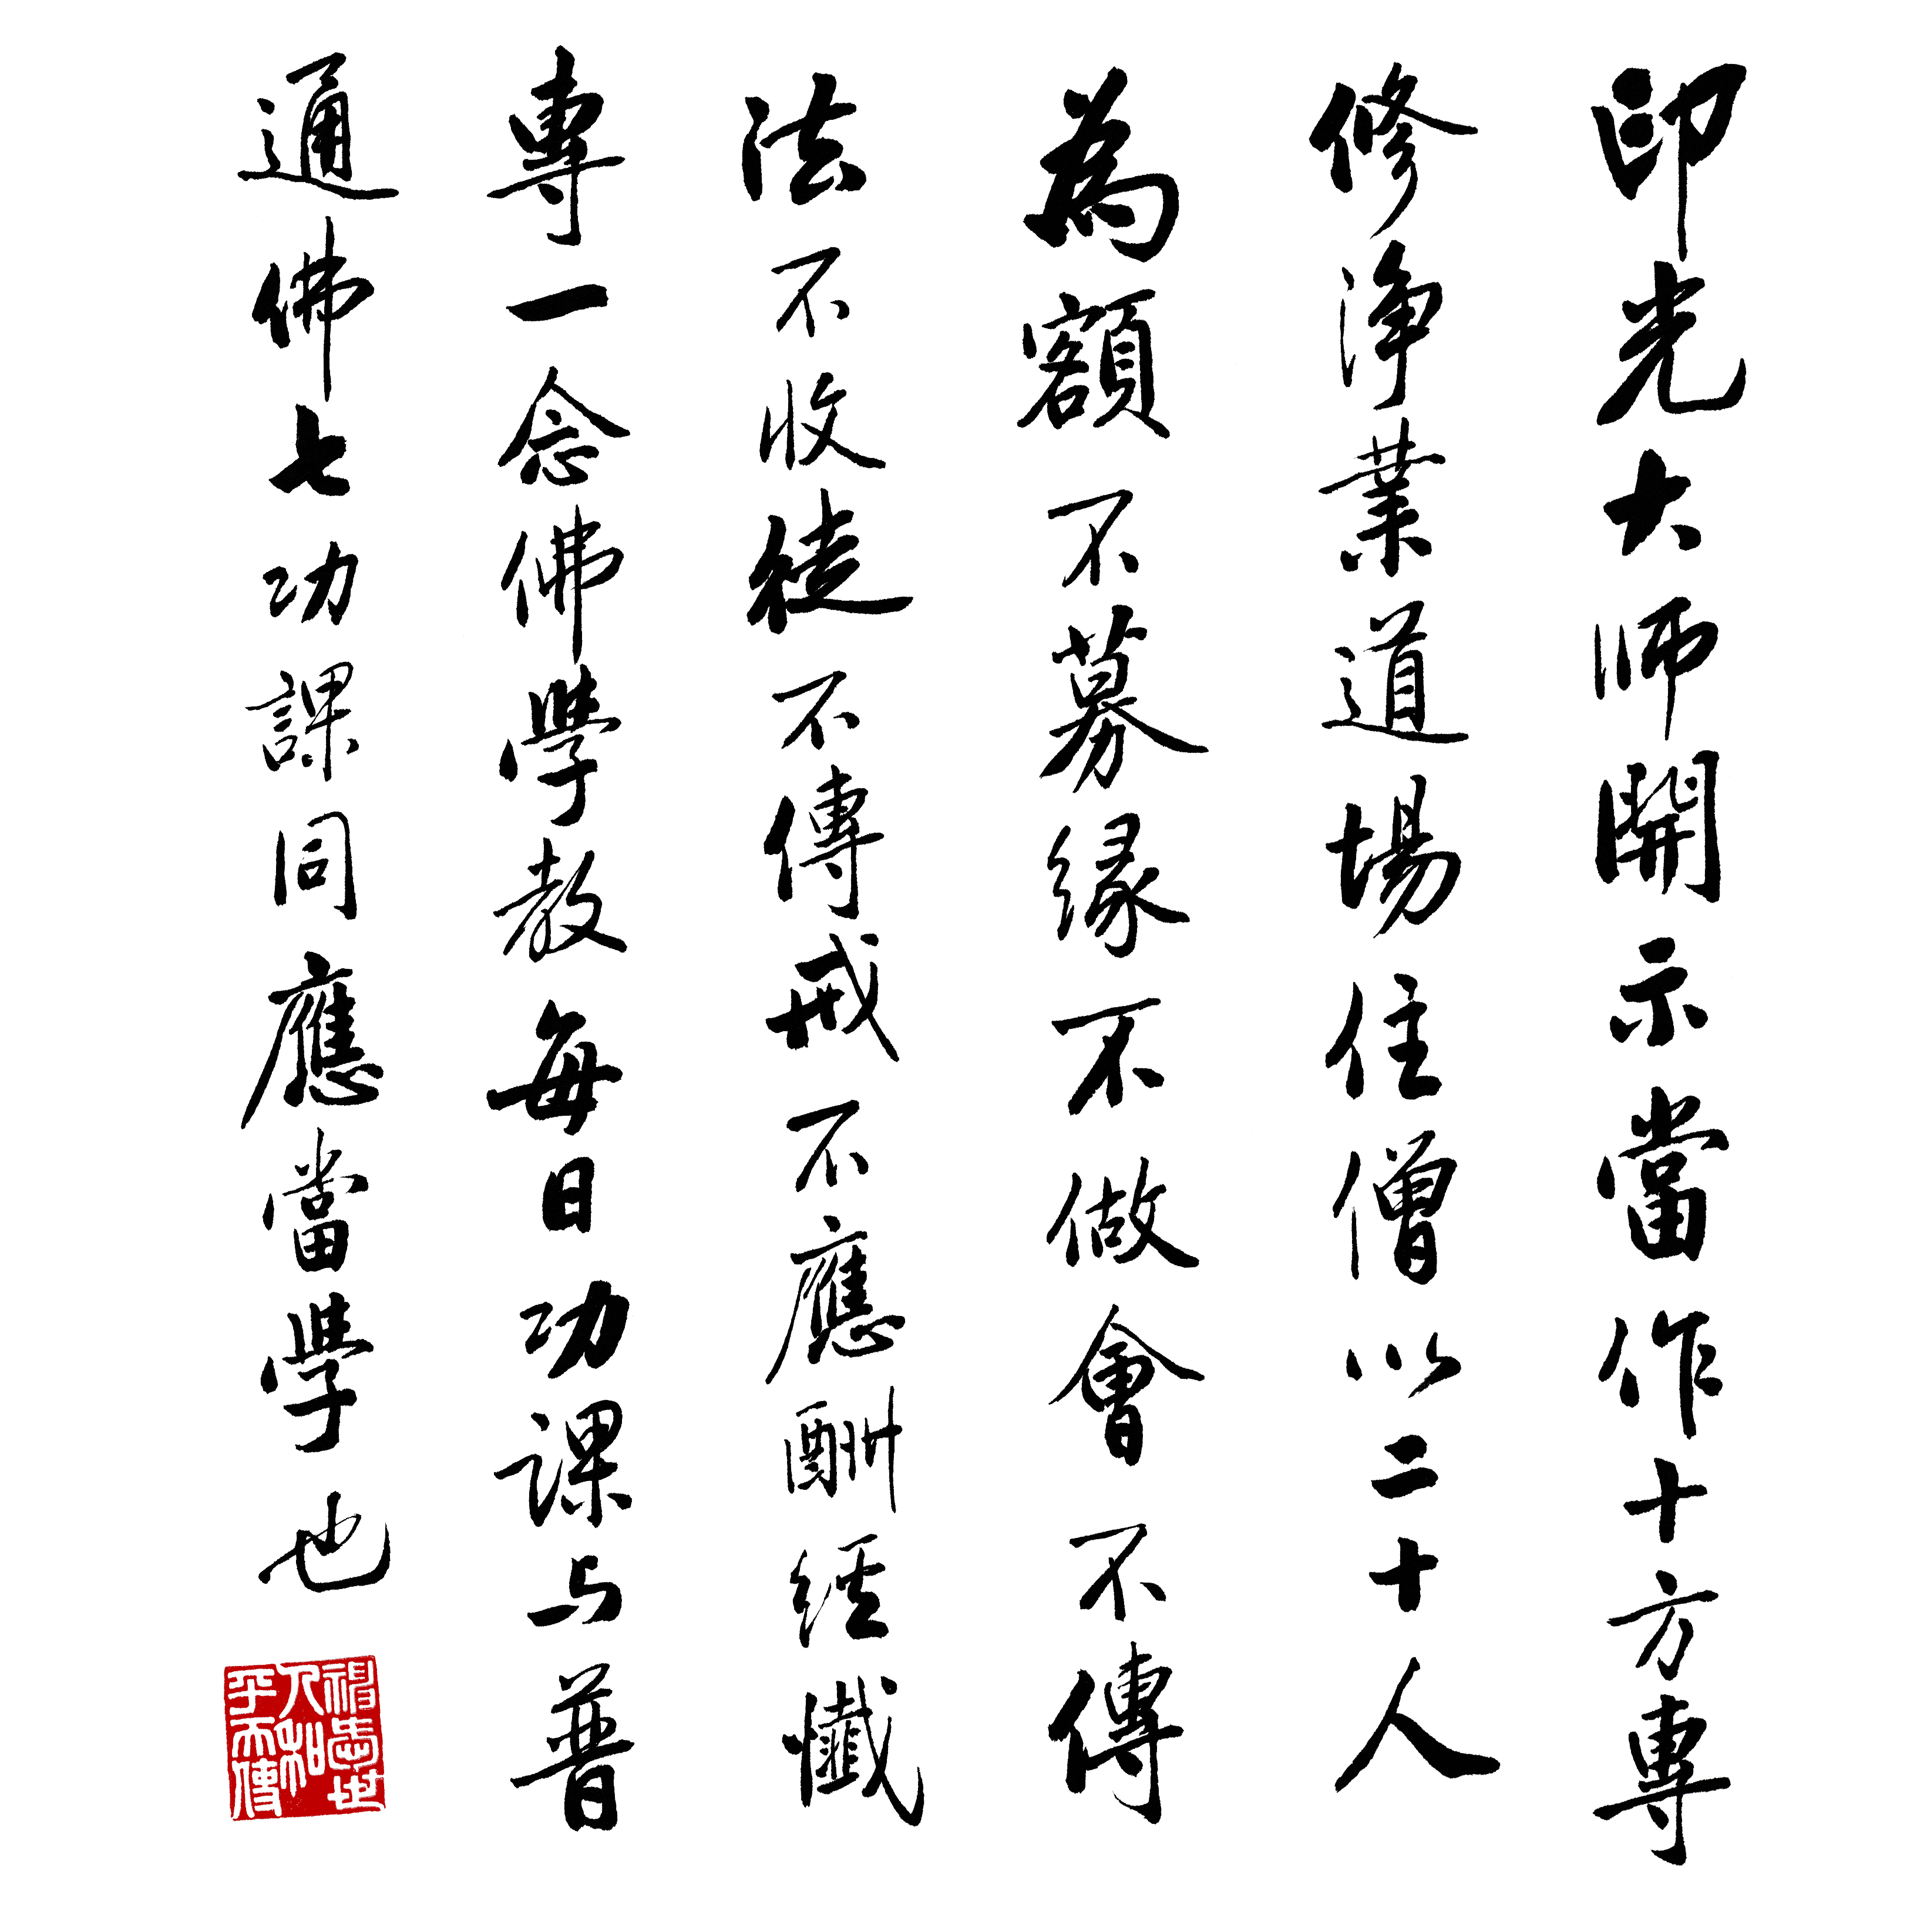 印光大師開示當作十方專
修淨業道場住僧以二十人
為額不募緣不做會不傳
法不收徒不傳戒不應酬經懺
專一念佛學教每日功課与普
通佛七功課同應當學也